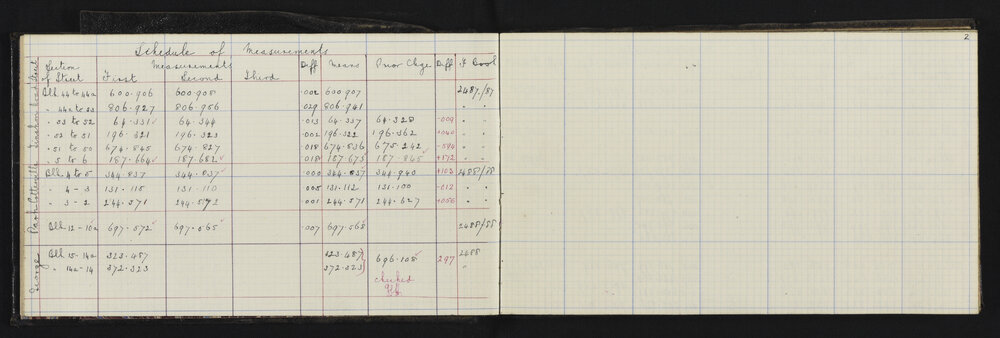 2
Schedule of Measurements
Section of Street Measurements Diff Means Prior Chge Diff F. Book
First Second Third
All 44 to 44a 600.906 600.908 .002 600.907 2487/87
" 44a to 53 806.927 806.956 .029 806.941 " "
" 53 to 52 64.331 64.344 .013 64.337 64.328 -009 " "
" 52 to 51 196.321 196.323 .002 196.322 196.362 +040 " "
" 51 to 50 674.845 674.827 .018 674.836 675.242 " "
" 5 to 6 187.664 187.682 .018 187.673 187.845 +172 " "
All 4 to 5 344.837 344.837 .000 344.837 344.940 +103 2488/88
" 4 - 3 131.115 131.110 .005 131.112 131.100 -012 " "
" 3 - 2 244.571 244.572 .001 244.571 244.627 +056 " "
All 12 - 10a 697.572 697.565 .007 697.568 2488/88
All 15 - 14a 323.487 323.487 696.108 297 2488
" 14a - 14 372.323 372.323 "
checked
George